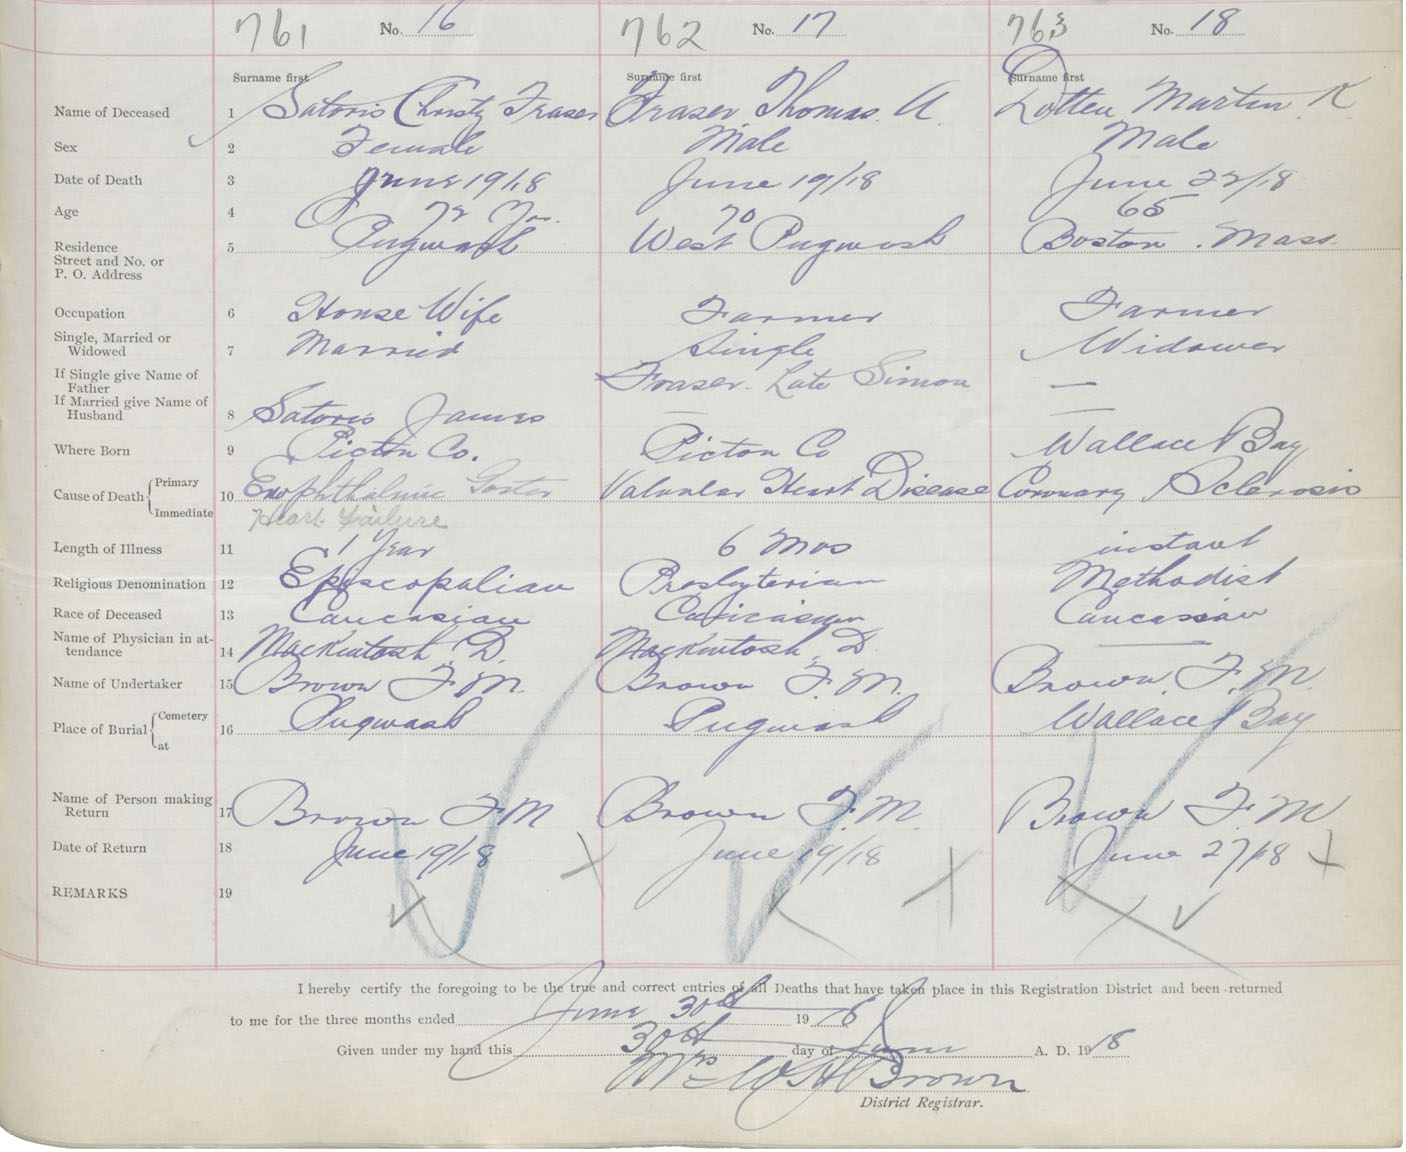 761 No. 16 762 No. 17 763 No. 18
Surname first Surname first Surname first
Name of Deceased 1 Satoris Christy Fraser Fraser Thomas. A. Dotten, Martin K.
Sex 2 Female Male Male
Date of Death 3 June 19/18 June 19/18 June 22/18
Age 4 72 Yrs. 70 65
Residence
Street and No. or
P. O. Address 5 Pugwash West Pugwash Boston. Mass.
Occupation 6 House Wife Farmer Farmer
Single, Married or
Widowed 7 Married Single Widower
If Single give Name of
Father Fraser. Late Simon —
If Married give Name of
Husband 8 Satoris James — —
Where Born 9 Picton Co. Picton Co Wallace Bay
Cause of Death Primary 10 Exophthalmic Goiter Valvular Heart Disease Coronary Sclerosis
Immediate Heart Failure
Length of Illness 11 1 Year 6 Mos instant
Religious Denomination 12 Episcopalian Presbyterian Methodist
Race of Deceased 13 Caucasian Caucasian Caucassian
Name of Physician in at-
tendance 14 Mackintosh, D. Mackintosh, D. —
Name of Undertaker 15 Brown F. M. Brown F. M. Brown, F. M.
Place of Burial Cemetery
at 16 Pugwash Pugwash Wallace Bay
Name of Person making
Return 17 Brown F M Brown F. M. Brown F. M
Date of Return 18 June 19/18 June 19/18 June 27/18
REMARKS 19
I hereby certify the foregoing to be the true and correct entries of all Deaths that have taken place in this Registration District and been returned
to me for the three months ended June 30th 1918
Given under my hand this 30th day of June A. D. 1918
Mrs W H Brown
District Registrar.